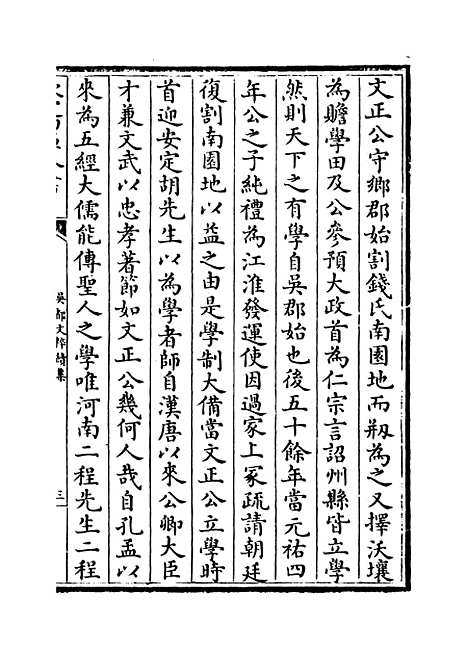 文正公守鄉郡始割錢氏南園地而刱為之又擇沃壤
為贍學田及公參預大政首為仁宗言詔州縣皆立學
然則天下之有學自吳郡始也後五十餘年當元祐四
年公之子純禮為江淮發運使因過家上冢疏請朝廷
復割南園地以益之由是學制大備當文正公立學時
首迎安定胡先生以為學者師自漢唐以來公卿大臣
才兼文武以忠孝著節如文正公幾何人哉自孔孟以
來為五經大儒能傳聖人之學唯河南二程先生二程
吳都文粹續集
三